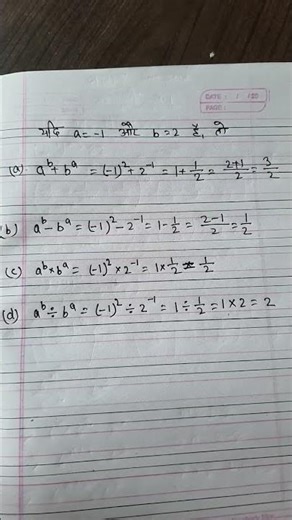 DATE: / /20
PAGE:
यदि a = -1 और b = 2 हैं, तो
(a) a^b + b^a = (-1)^2 + 2^-1 = 1 + 1/2 = (2+1)/2 = 3/2
(b) a^b - b^a = (-1)^2 - 2^-1 = 1 - 1/2 = (2-1)/2 = 1/2
(c) a^b × b^a = (-1)^2 × 2^-1 = 1 × 1/2 = 1/2
(d) a^b ÷ b^a = (-1)^2 ÷ 2^-1 = 1 ÷ 1/2 = 1 × 2 = 2